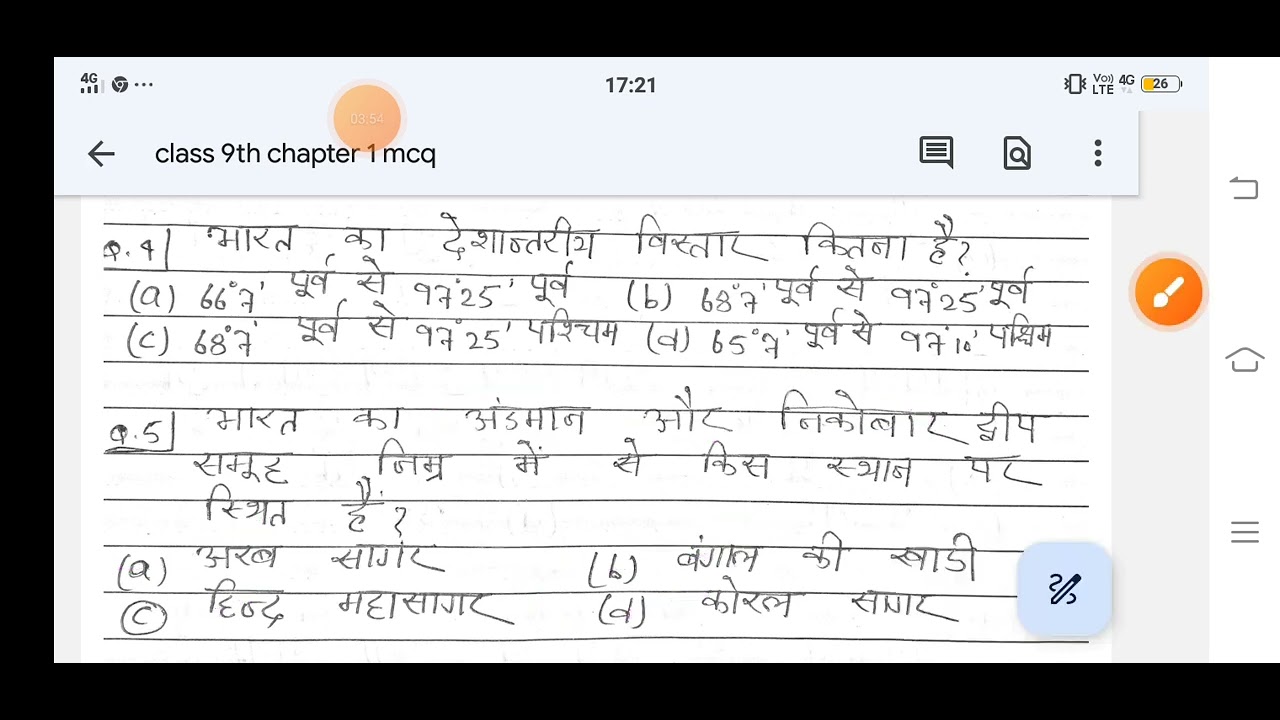 4G ... 17:21 Vo) LTE 4G 26
03:54
class 9th chapter 1 mcq
Q.4 भारत का देशान्तरीय विस्तार कितना है?
(a) 66°7' पूर्व से 97°25' पूर्व (b) 68°7' पूर्व से 97°25' पूर्व
(c) 68°7' पूर्व से 97°25' पश्चिम (d) 65°7' पूर्व से 97°10' पश्चिम
Q.5 भारत का अंडमान और निकोबार द्वीप
समूह निम्न में से किस स्थान पर
स्थित हैं?
(a) अरब सागर (b) बंगाल की खाडी
(c) हिन्द महासागर (d) कोरल सागर